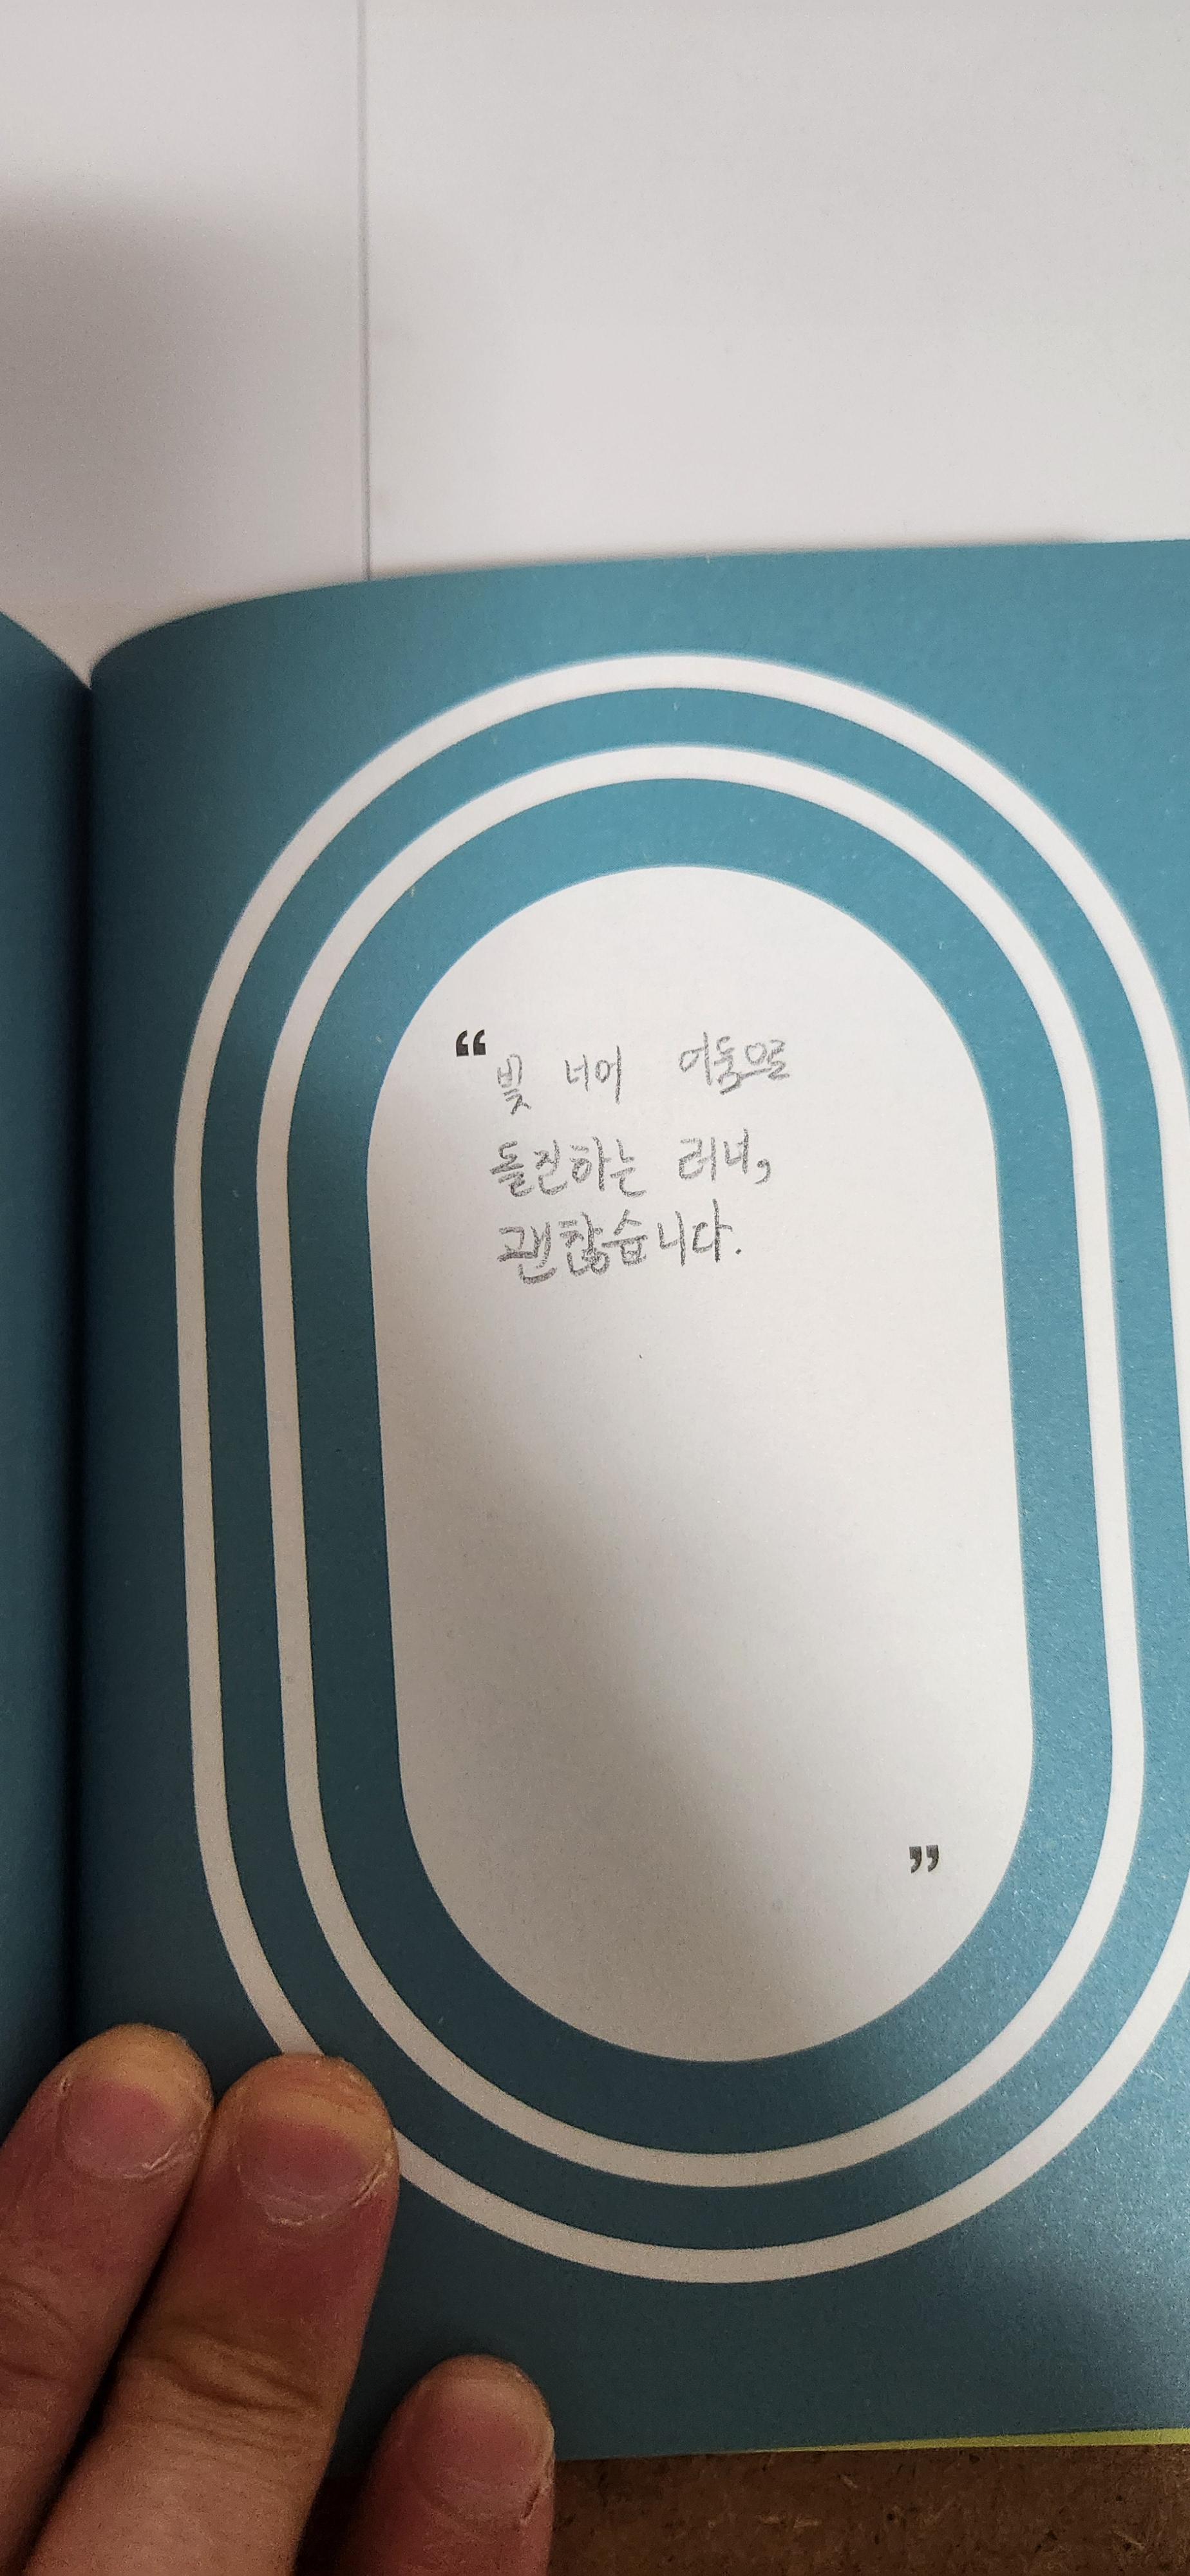 “빛 너머 어둠으로
돌진하는 러너,
괜찮습니다.
”